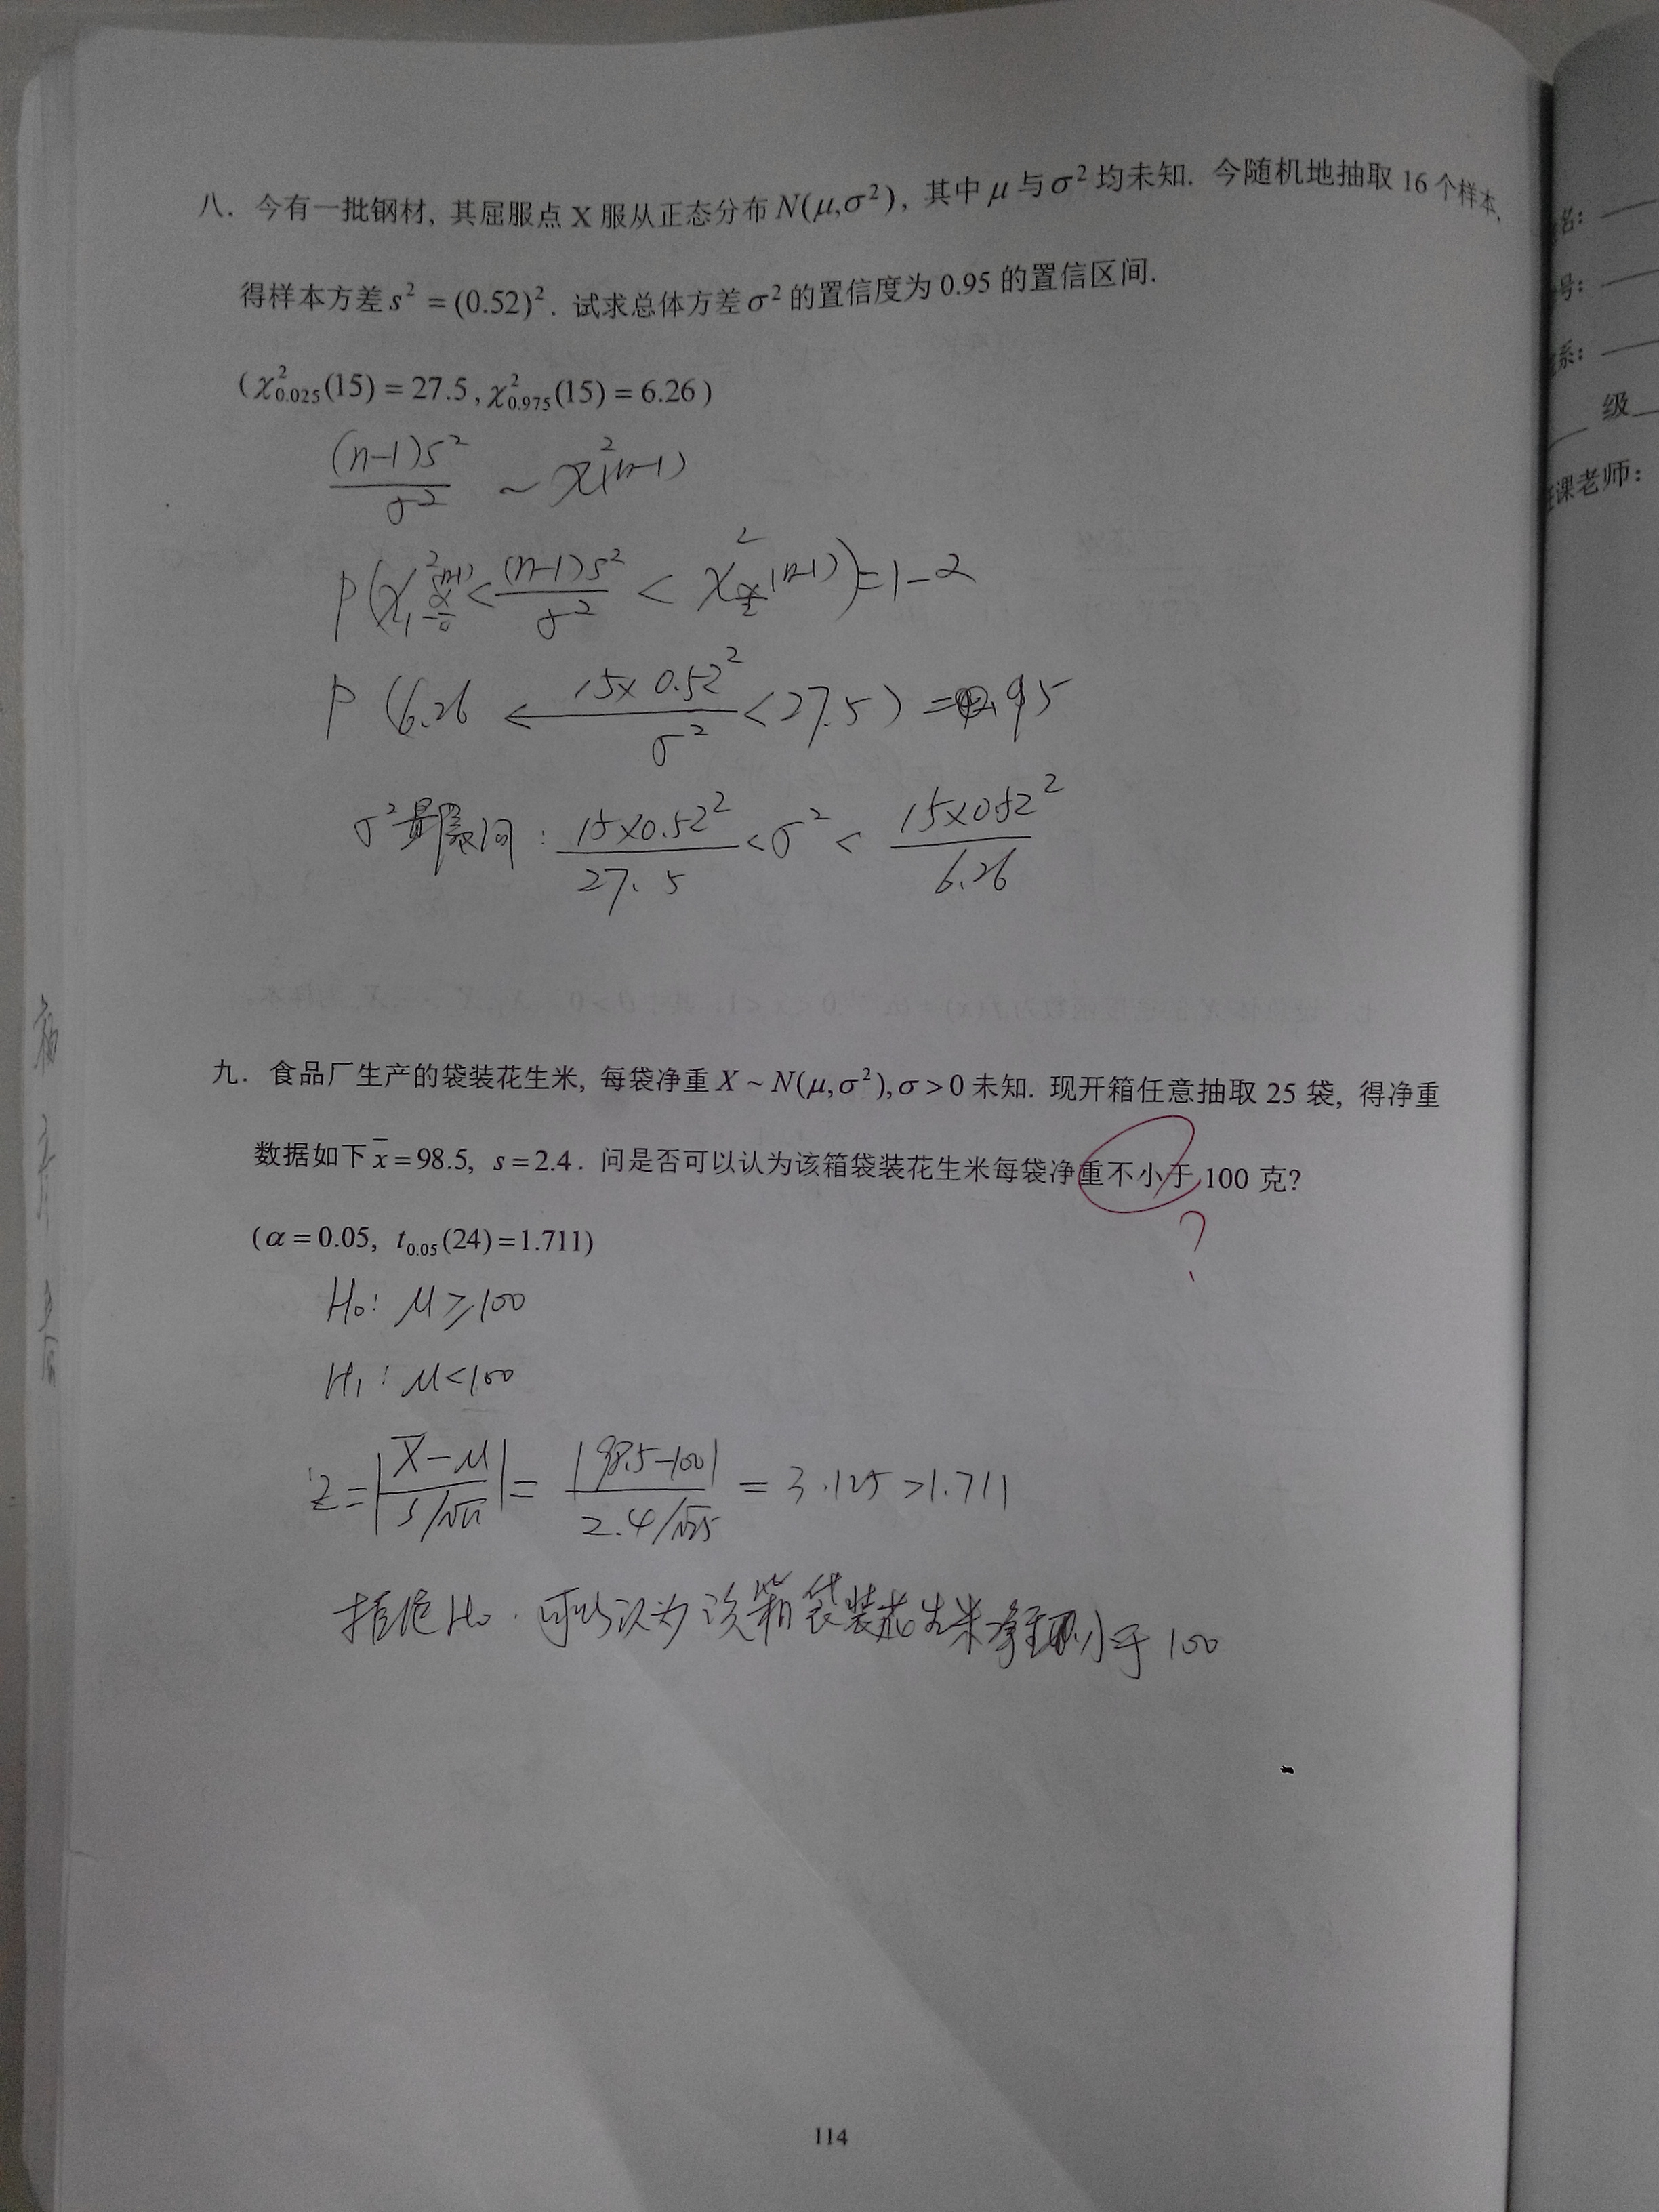 八. 今有一批钢材, 其屈服点 X 服从正态分布 N(μ,σ²), 其中 μ 与 σ² 均未知. 今随机地抽取 16 个样本,
得样本方差 s² = (0.52)². 试求总体方差 σ² 的置信度为 0.95 的置信区间.
(χ²₀.₀₂₅(15) = 27.5, χ²₀.₉₇₅(15) = 6.26)
(n-1)s²/σ² ~ χ²(n-1)
P(χ²₁₋α/₂(n-1) < (n-1)s²/σ² < χ²α/₂(n-1)) = 1-α
P(6.26 < 15×0.52²/σ² < 27.5) = 0.95
σ² 间: 15×0.52²/27.5 < σ² < 15×0.52²/6.26
九. 食品厂生产的袋装花生米, 每袋净重 X ~ N(μ,σ²), σ > 0 未知. 现开箱任意抽取 25 袋, 得净重
数据如下 x̄ = 98.5, s = 2.4. 问是否可以认为该箱袋装花生米每袋净重不小于 100 克?
?
(α = 0.05, t₀.₀₅(24) = 1.711)
H₀: μ ≥ 100
H₁: μ < 100
Z = |X̄-μ / s/√n| = |98.5-100| / 2.4/√25 = 3.125 > 1.711
拒绝 H₀. 可以认为该箱袋装花生米净重小于 100
114
名:
号:
系:
级
课老师: